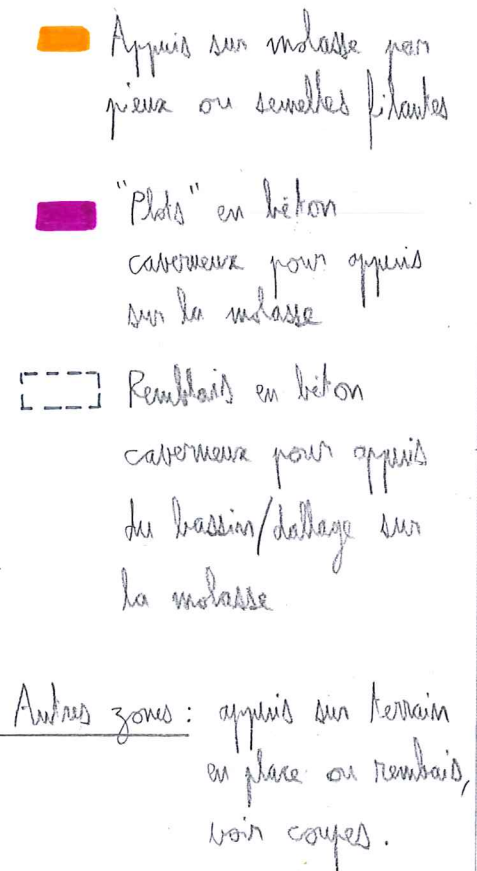 Appuis sur molasse par
pieux ou semelles filantes
"Plots" en béton
caverneux pour appuis
sur la molasse
Remblais en béton
caverneux pour appuis
du bassin/dallage sur
la molasse
Autres zones : appuis sur terrain
en place ou rembais,
voir coupes.